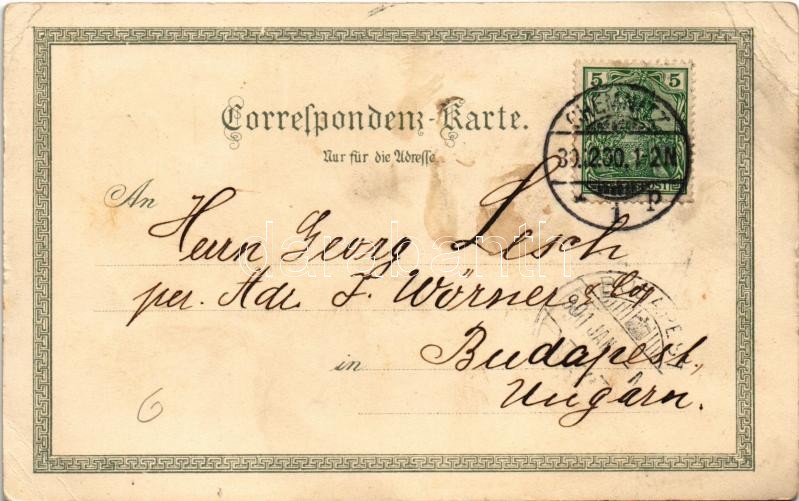 5 5
CHEMNITZ
30.12.00.1-2N
1 P
Correspondenz-Karte.
Nur für die Adresse
An
Herrn Georg Lesch
per. Adr. F. Wörner & Co
in Budapest,
Ungarn.
BUDAPEST
901 JAN
6
darabanth